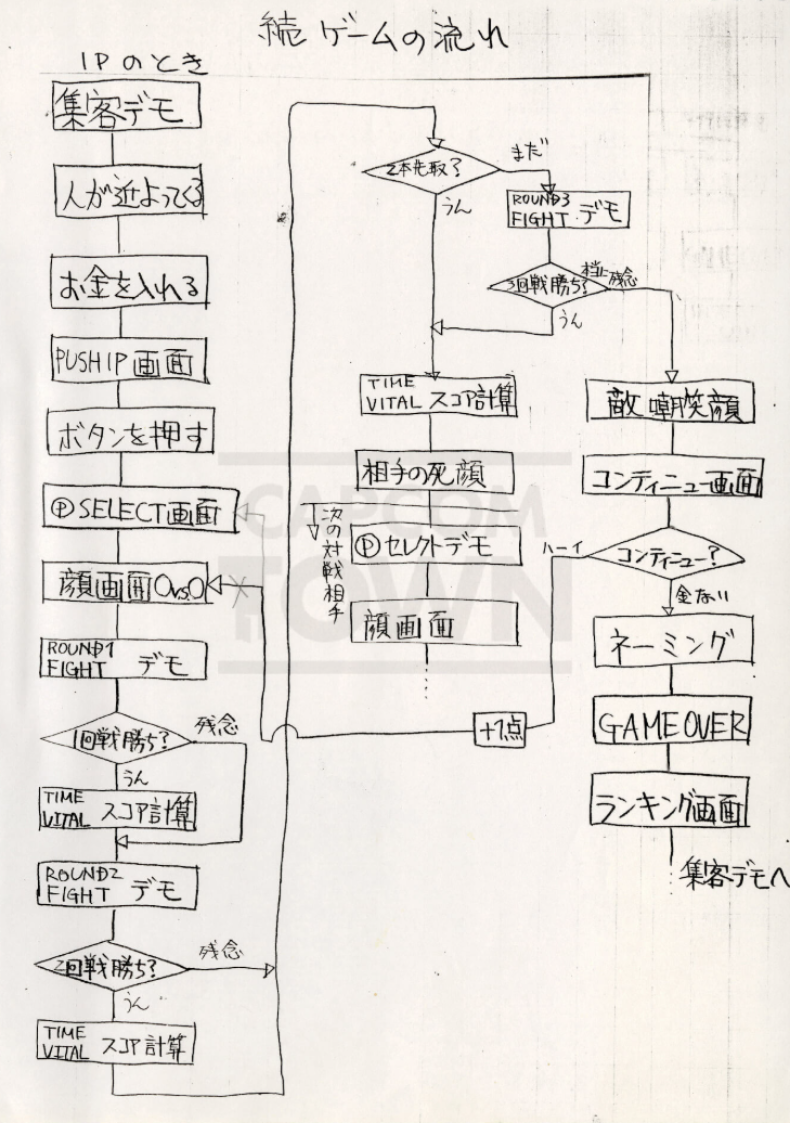 続 ゲームの流れ
1Pのとき
集客デモ
人が近よってくる
お金を入れる
PUSH1P画面
ボタンを押す
Ⓟ SELECT画面
顔画面 ○vs.○
ROUND1
FIGHT デモ
1回戦勝ち?
残念
うん
TIME
VITAL スコア計算
ROUND2
FIGHT デモ
2回戦勝ち?
残念
うん
TIME
VITAL スコア計算
2本先取?
まだ
うん
ROUND3
FIGHT デモ
3回戦勝ち?
残念
うん
TIME
VITAL スコア計算
相手の死顔
次の対戦相手
Ⓟ セレクトデモ
顔画面
敵 嘲笑顔
コンティニュー画面
コンティニュー?
ハーイ
+1点
金ない
ネーミング
GAME OVER
ランキング画面
集客デモへ
CAPCOM
TOWN